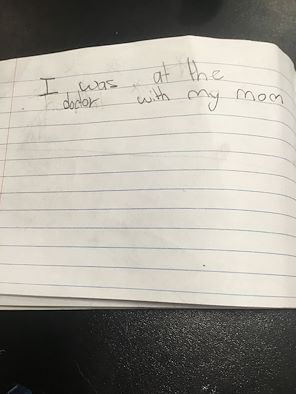 I was at the
doctor with my mom